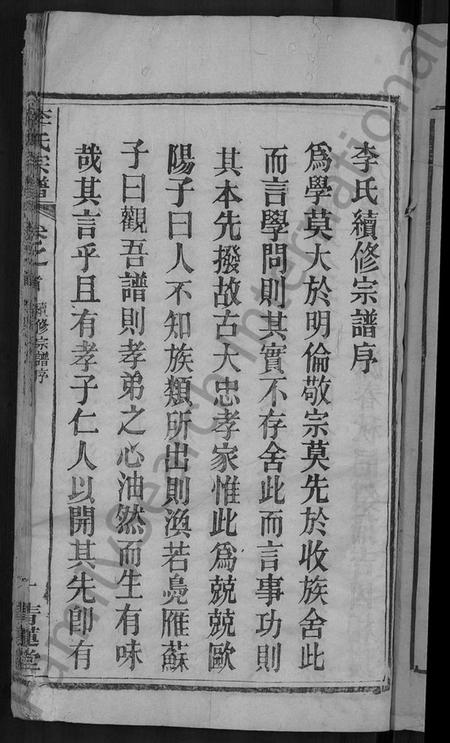 李氏續修宗譜序
爲學莫大於明倫敬宗莫先於收族舍此
而言學問則其實不存舍此而言事功則
其本先撥故古大忠孝家惟此爲兢兢歐
陽子曰人不知族類所出則渙若鳧雁蘇
子曰觀吾譜則孝弟之心油然而生有味
哉其言乎且有孝子仁人以開其先卽有
李氏宗譜
卷之首
續修宗譜序
一
青蓮堂
FamilySearch International